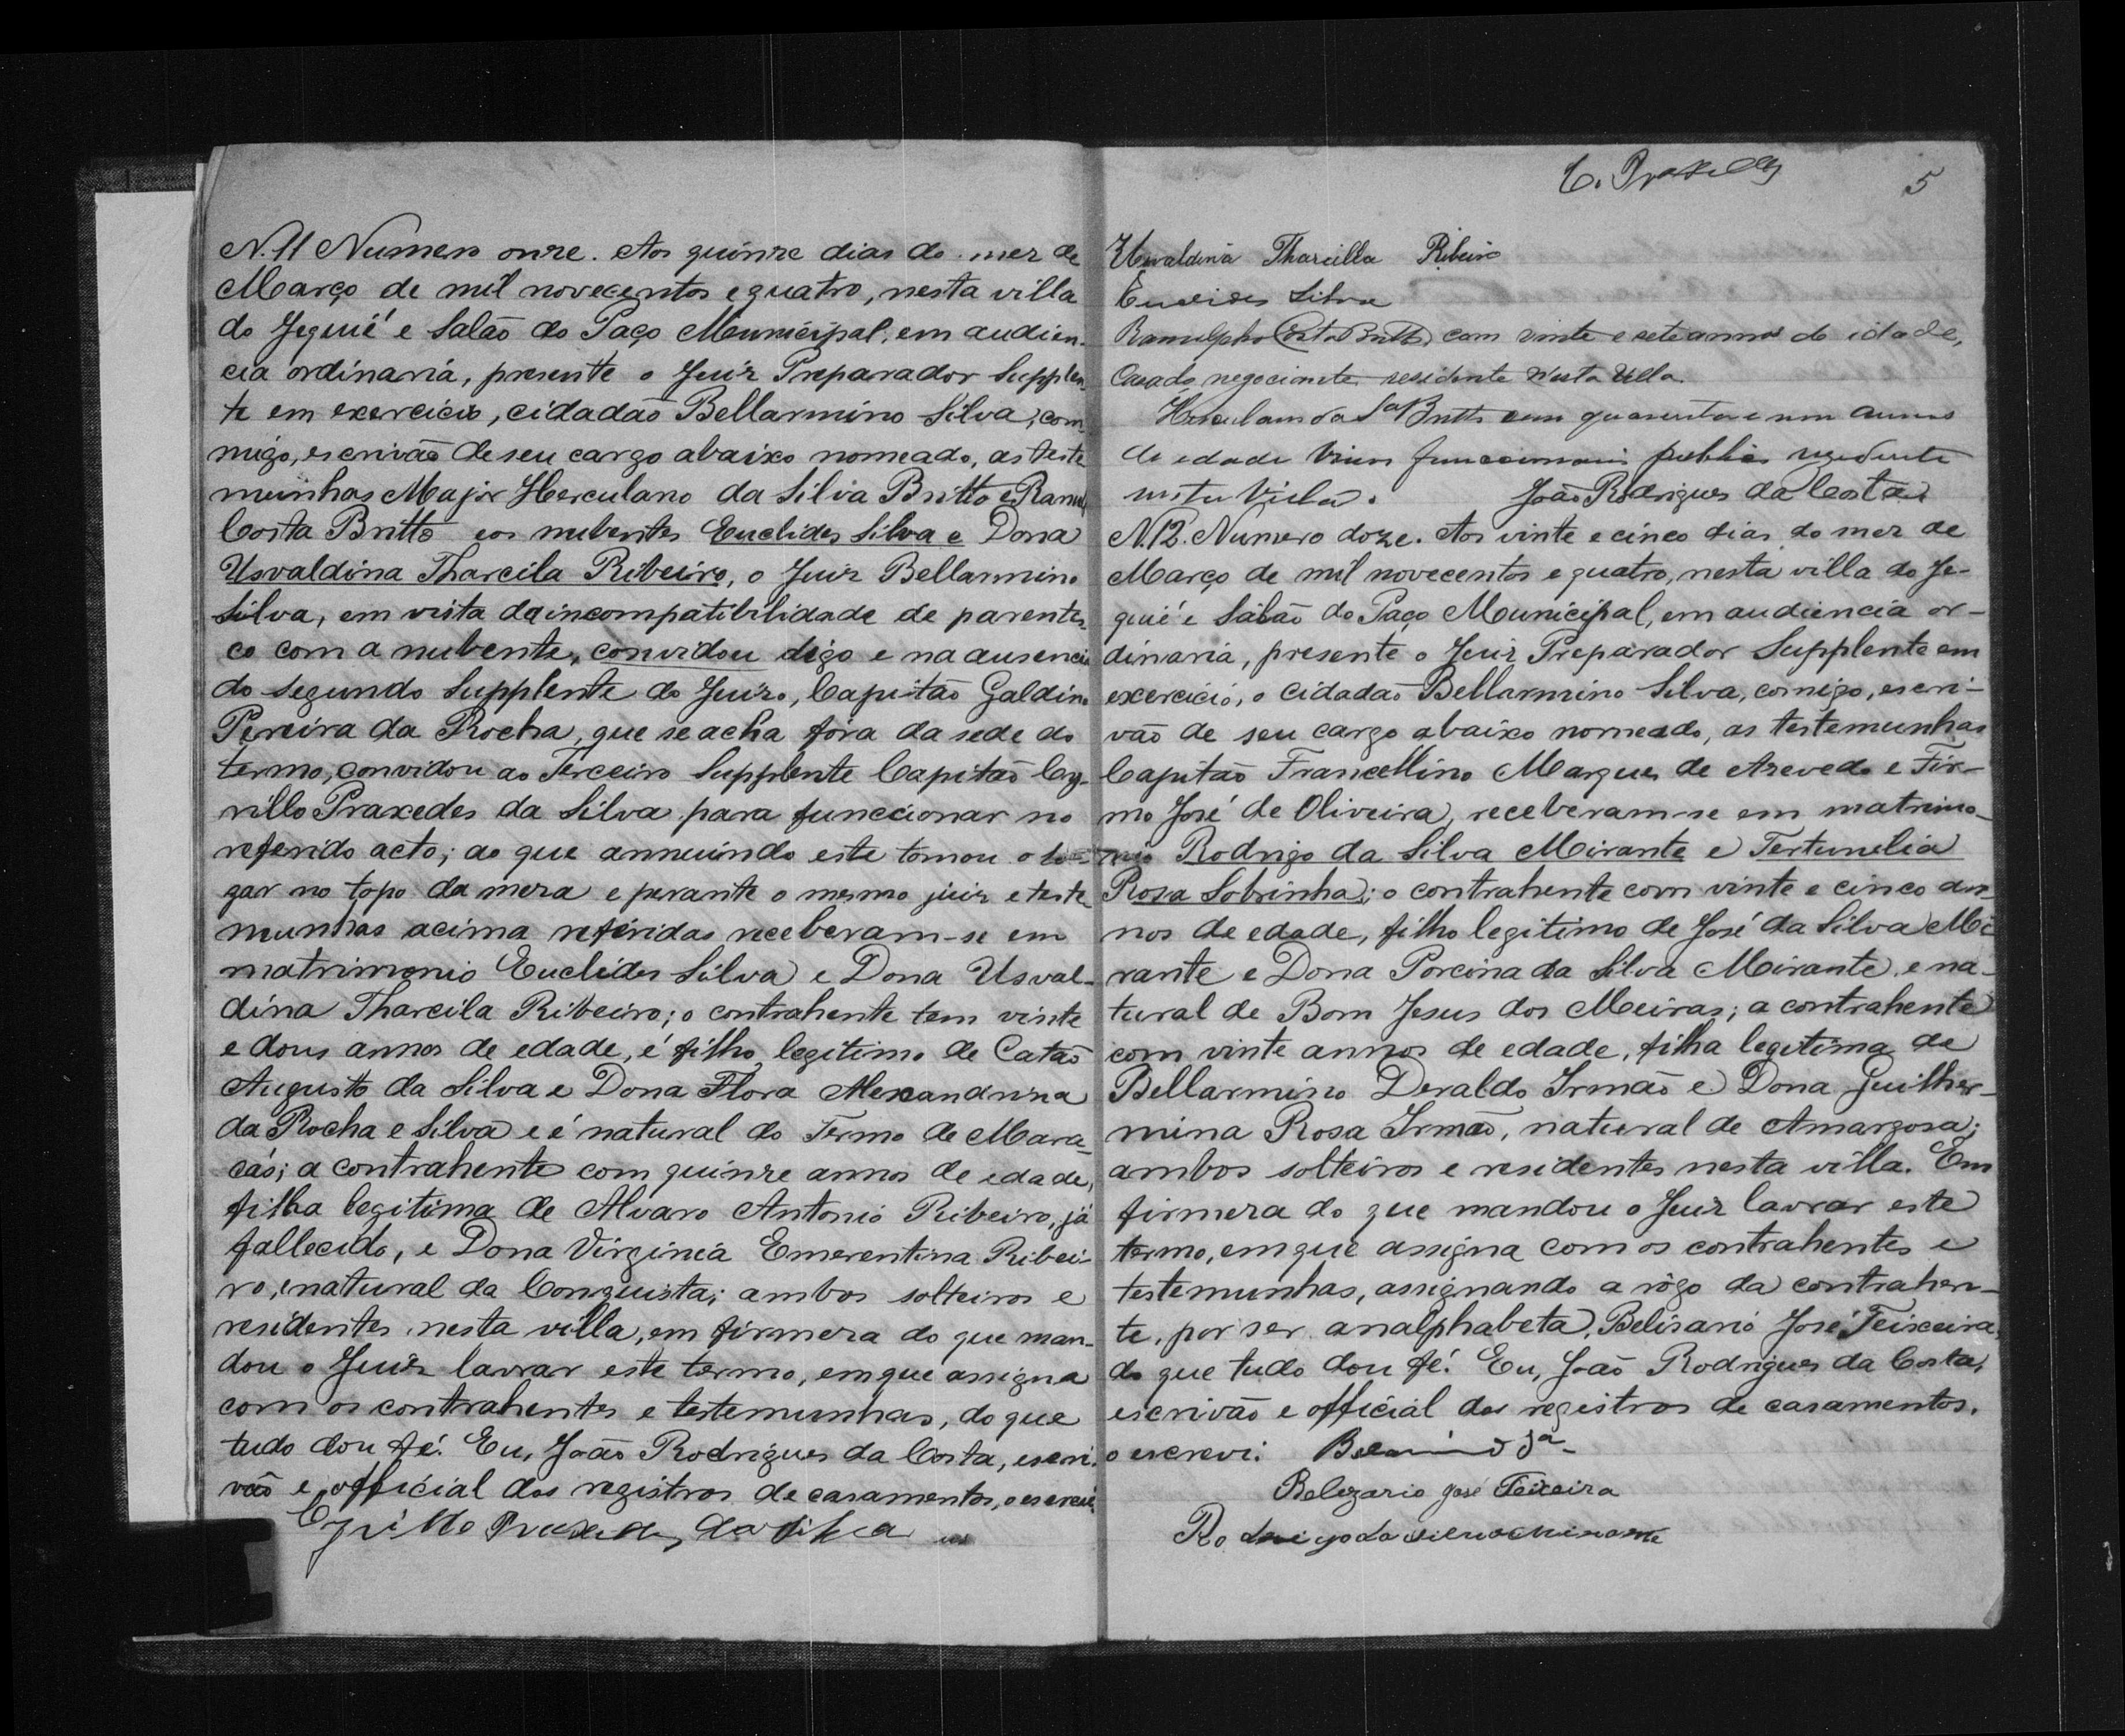 N. 11 Numero onze. Aos quinze dias do mez de
Março de mil novecentos e quatro, nesta villa
do Jequié e Salão do Paço Municipal, em audien-
cia ordinaria, presente o Juiz Preparador Supplen-
te em exercicio, cidadão Bellarmino Silva, com-
migo, escrivão de seu cargo abaixo nomeado, as teste
munhas Major Herculano da Silva Britto e Ranul
Costa Britto e os nubentes Euclides Silva e Dona
Usvaldina Tharcila Ribeiro, o Juiz Bellarmino
Silva, em vista da incompatibilidade de parentes-
co com a nubente, convidou digo e na ausencia
do segundo Supplente do Juizo, Capitão Galdino
Pereira da Rocha, que se acha fóra da sede do
termo, convidou ao Terceiro Supplente Capitão Cy-
rillo Praxedes da Silva para funccionar no
referido acto; ao que annuindo este tomou o lo-
gar no topo da meza e perante o mesmo juiz e teste-
munhas acima referidas receberam-se em
matrimonio Euclides Silva e Dona Usval-
dina Tharcila Ribeiro; o contrahente tem vinte
e dous annos de edade, é filho legitimo de Catão
Augusto da Silva e Dona Flora Alexandrina
da Rocha e Silva e é natural do Termo de Mara-
cás; a contrahente com quinze annos de edade,
filha legitima de Alvaro Antonio Ribeiro, já
fallecido, e Dona Virginia Emerentina Ribei-
ro, e natural da Conquista; ambos solteiros e
residentes nesta villa, em firmeza do que man-
dou o Juiz lavrar este termo, em que assigna
com os contrahentes e testemunhas, do que
tudo dou fé. Eu, João Rodrigues da Costa, escri-
vão e official dos registros de casamentos, o escrevi.
Cyrillo Praxedes da Silva
C. Praxedes 5
Usvaldina Tharcilla Ribeiro
Euclides Silva
Ranulpho Costa Britto, com vinte e sete annos de idade,
Casado, negociante residente nesta Villa.
Herculano da Sa Britto com quarenta e um annos
de edade funccionario publico residente
nesta Villa. João Rodrigues da Costa
N. 12. Numero doze. Aos vinte e cinco dias do mez de
Março de mil novecentos e quatro, nesta villa do Je-
quié e Salão do Paço Municipal, em audiencia or-
dinaria, presente o Juiz Preparador Supplente em
exercicio, o cidadão Bellarmino Silva, comigo, escri-
vão de seu cargo abaixo nomeado, as testemunhas
Capitão Francellino Marques de Azevedo e Fir-
mo José de Oliveira, receberam-se em matrimo-
nio Rodrigo da Silva Mirante e Tertunelia
Rosa Sobrinha; o contrahente com vinte e cinco an-
nos de edade, filho legitimo de José da Silva Mi
rante e Dona Porcina da Silva Mirante, e na-
tural de Bom Jesus dos Meiras; a contrahente
com vinte annos de edade, filha legitima de
Bellarmino Deraldo Irmão e Dona Guilher-
mina Rosa Irmão, natural de Amargosa;
ambos solteiros e residentes nesta villa. Em
firmeza do que mandou o Juiz lavrar este
termo, em que assigna com os contrahentes e
testemunhas, assignando a rôgo da contrahen-
te, por ser analphabeta, Belisario José Teixeira,
do que tudo dou fé. Eu, João Rodrigues da Costa,
escrivão e official dos registros de casamentos,
o escrevi.
Belizario José Teixeira
Rodrigo da Silva Mirante